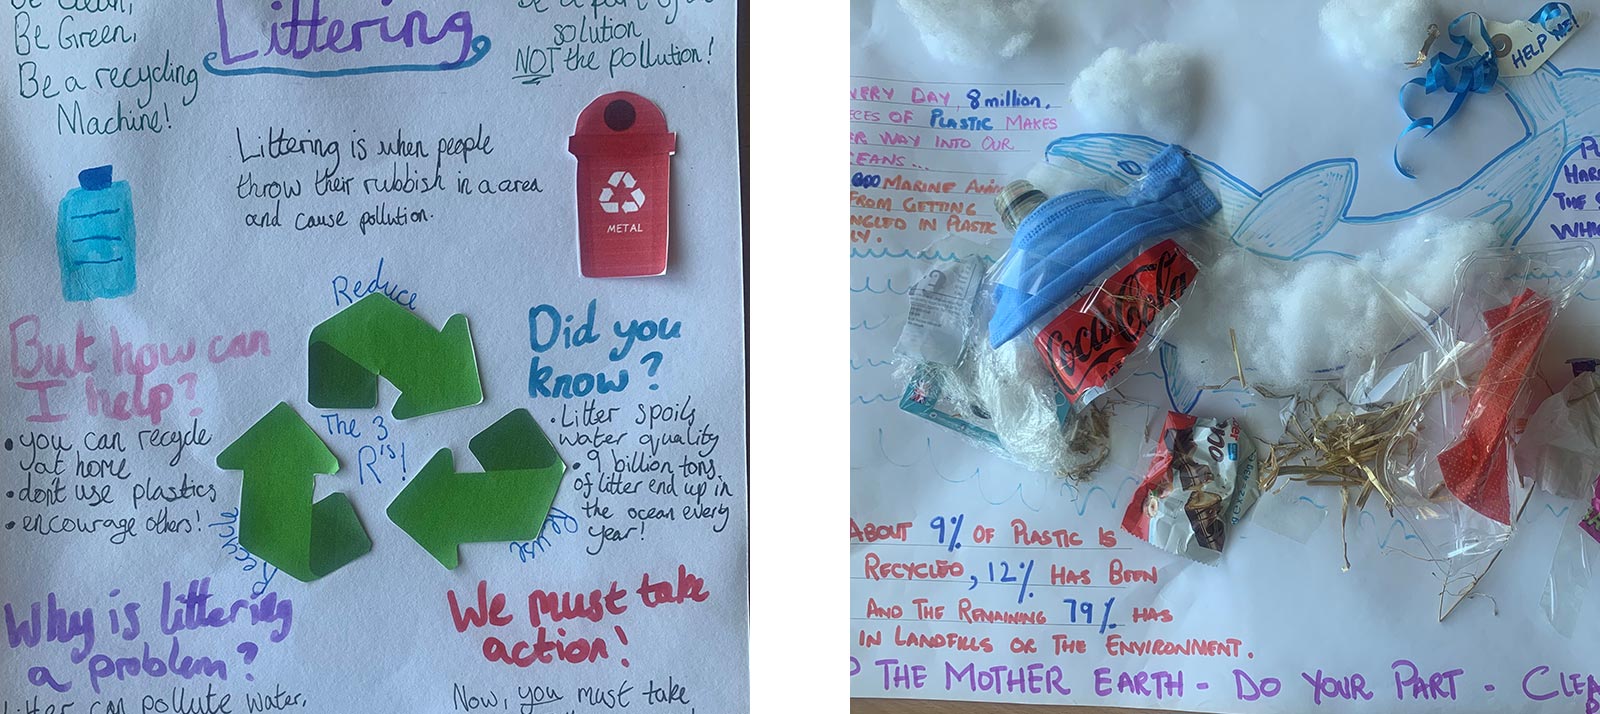 Be Clean,
Be Green,
Be a recycling
Machine!
Littering
Be a part of
solution
NOT the pollution!
Littering is when people
throw their rubbish in a area
and cause pollution.
METAL
But how can
I help?
• you can recycle
at home
• don't use plastics
• encourage others!
Reduce
The 3
R's!
Recycle
Re use
Did you
know?
• Litter spoils
water quality
• 9 billion tons
of litter end up in
the ocean every
year!
Why is littering
a problem?
Litter can pollute water,
We must take
action!
Now, you must take
HELP ME!
VERY DAY 8 million,
ECES OF PLASTIC MAKES
ER WAY INTO OUR
CEANS...
MARINE ANI
FROM GETTING
NGLED IN PLASTIC
LY.
PL
HAR
THE S
WHI
Coca-Cola
ABOUT 9% OF PLASTIC IS
RECYCLED, 12% HAS BEEN
AND THE REMAINING 79% HAS
IN LANDFILLS OR THE ENVIRONMENT.
P THE MOTHER EARTH - DO YOUR PART - CLEA